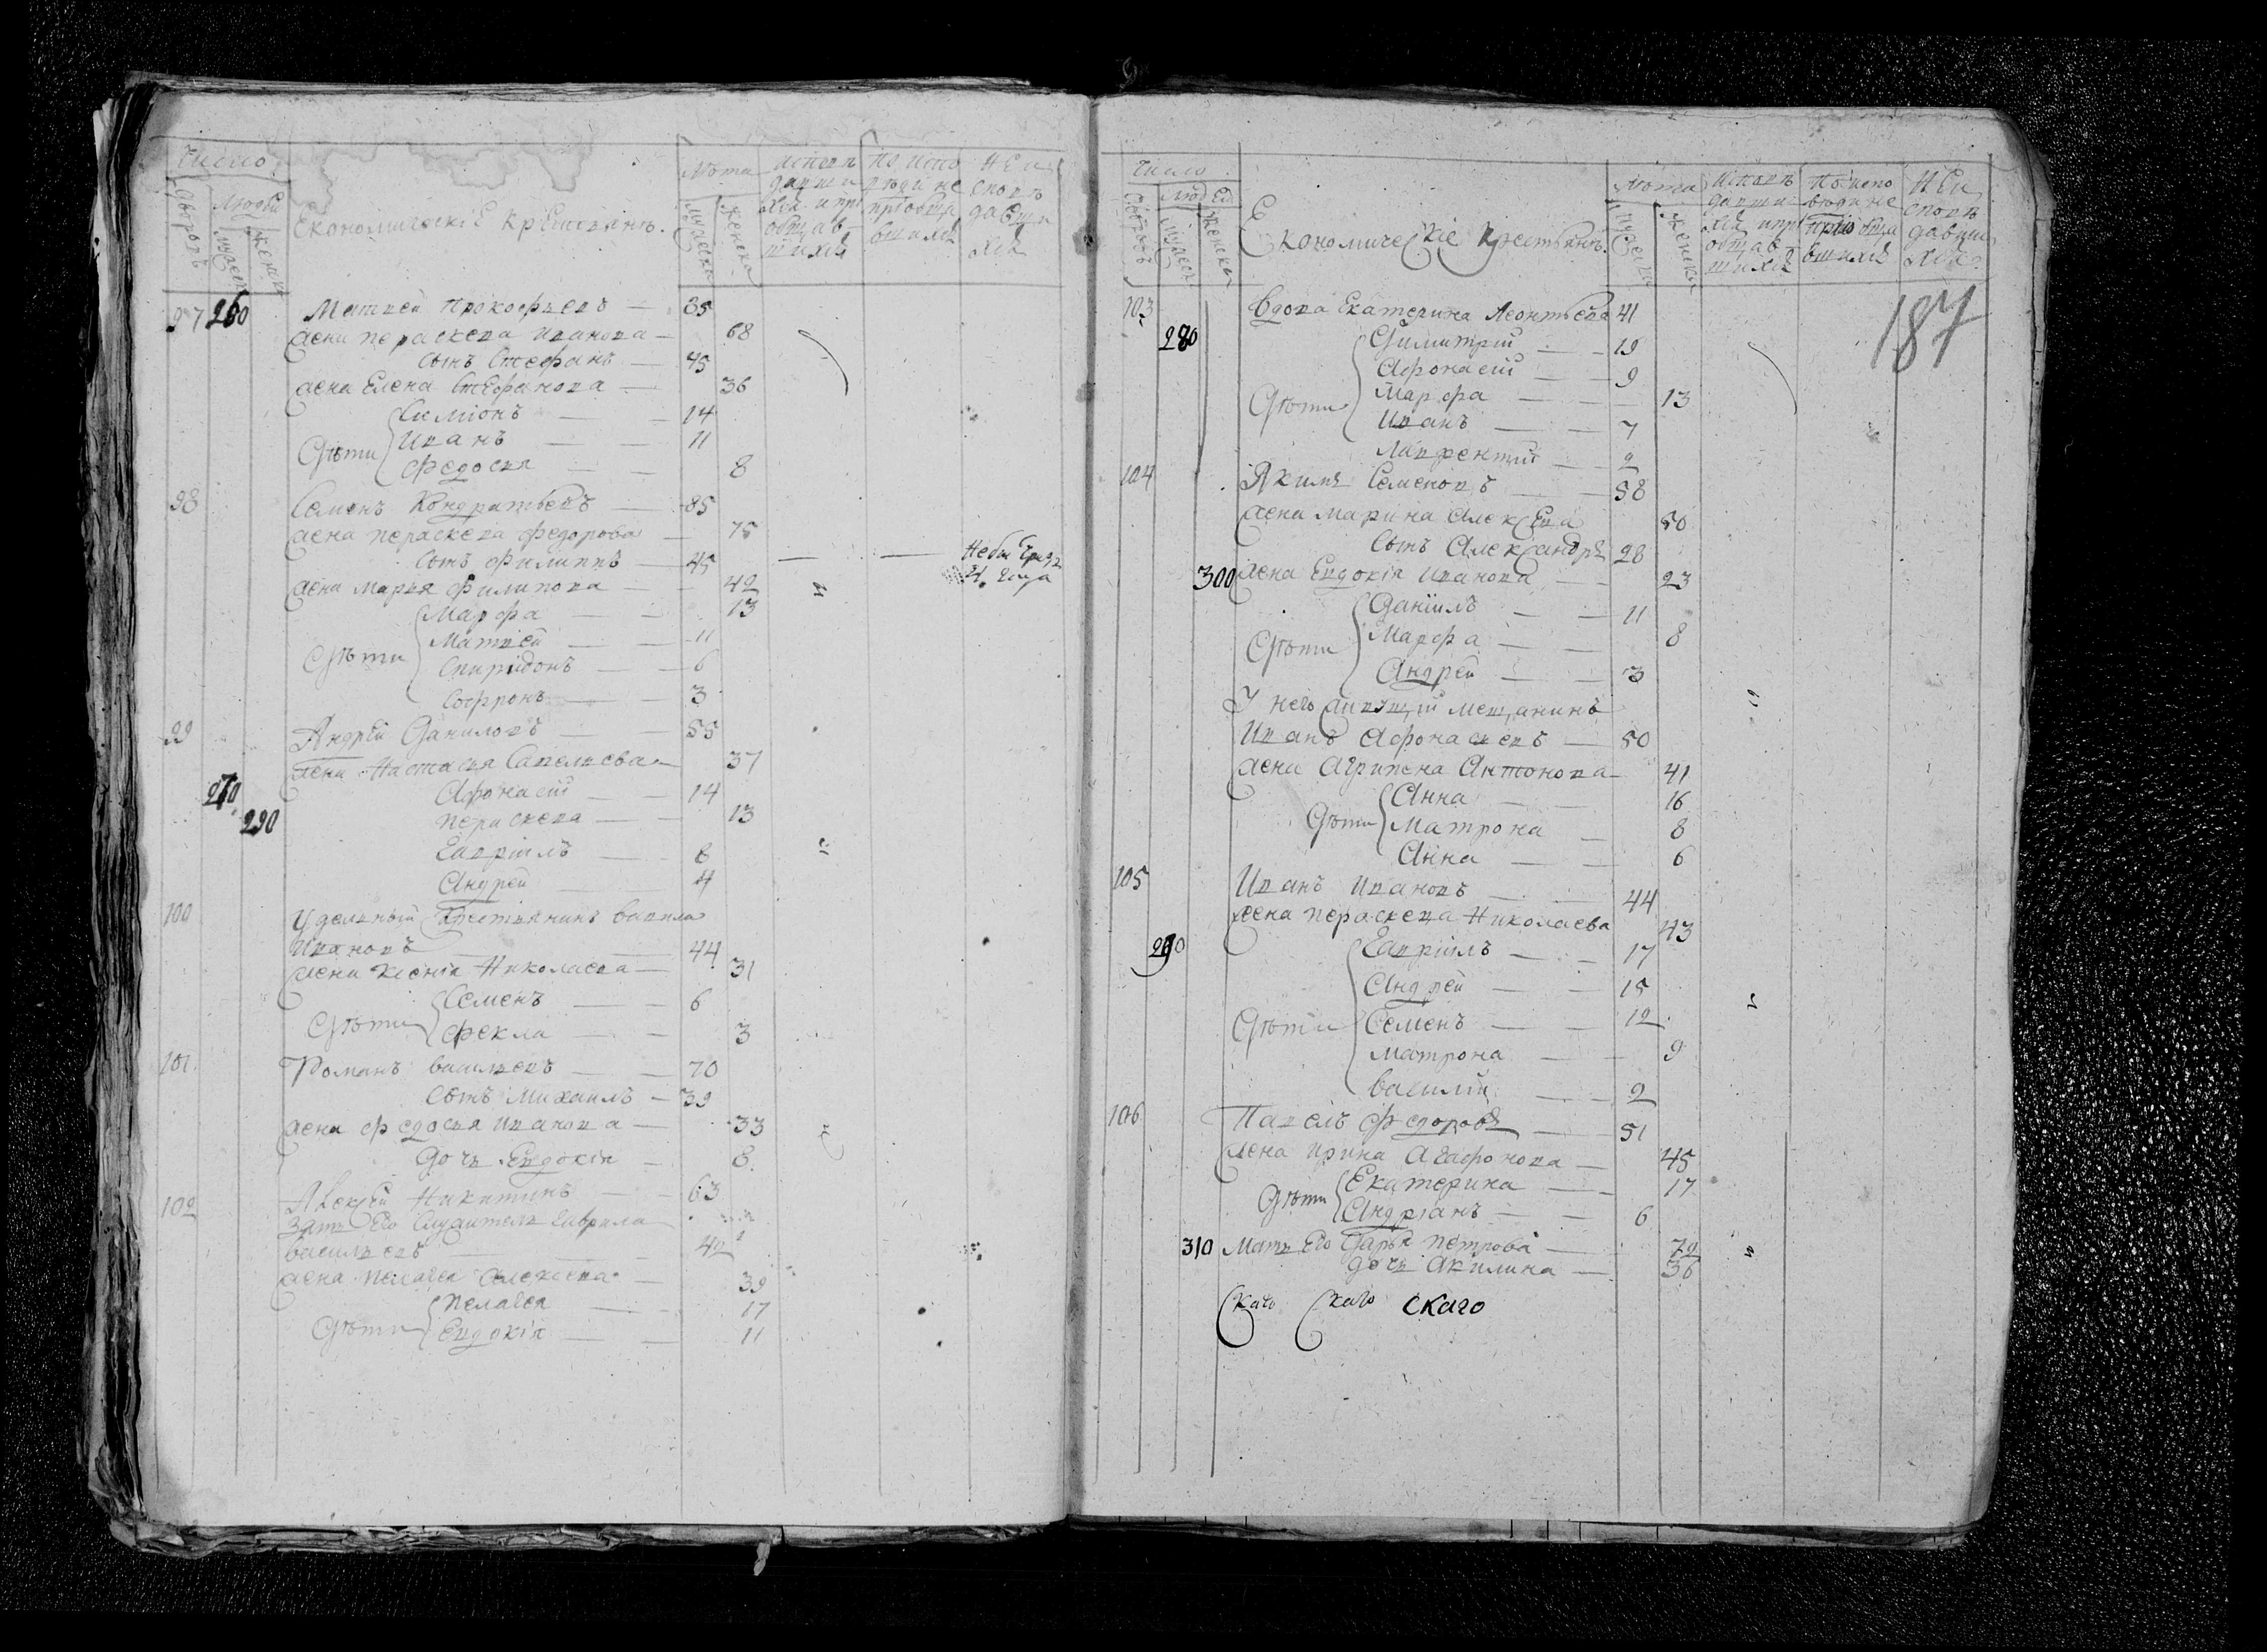 Число
Дворовъ
Людей
Мужеск
Женска
Економическіе крестьянъ.
Лѣта
Мужеска
Женска
Исповѣ
давши
хся и при
общав
шихся
По испо
вѣди не
пріобща
вшихся
Не и
сповѣ
давши
хся
97 260 Матвей Прокофьевъ — 35
жена Пераскева Иванова — 68
сынъ Стефанъ — 45
жена Елена Стефанова — 36
Симіонъ — 14
Дѣти Иванъ — 11
Федосья — 8
98 Семенъ Кондратьевъ — 85
жена Пераскева Федорова — 75
сынъ Филиппъ — 45 — —
жена Марья Филипова — 42
Марфа — 13
Матвей — 11
Дѣти Спиридонъ — 6
Софронъ — 3
99 Андрей Даниловъ — 55
жена Настасья Савельева — 37
270 Афонасій — 14
290 Пераскева — 13
Гавріилъ — 8
Андрей — 4
100 Удельный крестьянинъ Василей
Ивановъ — 44
жена Ксенія Николаева — 31
Дѣти Семенъ — 6
Фекла — 3
101 Романъ Васильевъ — 70
сынъ Михаилъ — 39
жена Федосья Иванова — 33
дочь Евдокія — 8
102 Алексей Никитинъ — 63
Зять его Гаврила
Васильевъ — 42
жена Пелагея Алексеева — 39
Дѣти Пелагея — 17
Евдокія — 11
Число
Дворовъ
Людей
Мужеск
Женска
Економическіе крестьянъ.
Лѣта
Мужеска
Женска
Исповѣ
давши
хся и при
общав
шихся
По испо
вѣди не
пріобща
вшихся
Не и
сповѣ
давши
хся
187
103 Вдова Екатерина Леонтьева 41
280 Димитрій — 19
Афонасій — 9
Дѣти Марфа — 13
Иванъ — 7
Лаврентій — 2
104 Якимъ Семеновъ — 58
жена Марина Алексеева 50
сынъ Александръ 28
300 жена Евдокія Иванова — 23
Даніилъ — 11
Дѣти Марфа — 8
Андрей — 3
У него живущій мещанинъ
Иванъ Афонасьевъ — 50
жена Агрипена Антонова — 41
Анна — 16
Дѣти Матрона — 8
Анна — 6
105 Иванъ Ивановъ — 44
жена Пераскева Николаева 43
290 Гавріилъ — 17
Андрей — 15
Дѣти Семенъ — 12
Матрона — 9
Василій — 2
106 Павелъ Федоровъ — 51
жена Ирина Агафонова — 45
Дѣти Екатерина — 17
Андріанъ — 6
310 Мать его Дарья Петрова — 72
дочь Акилина — 36
скаго скаго скаго